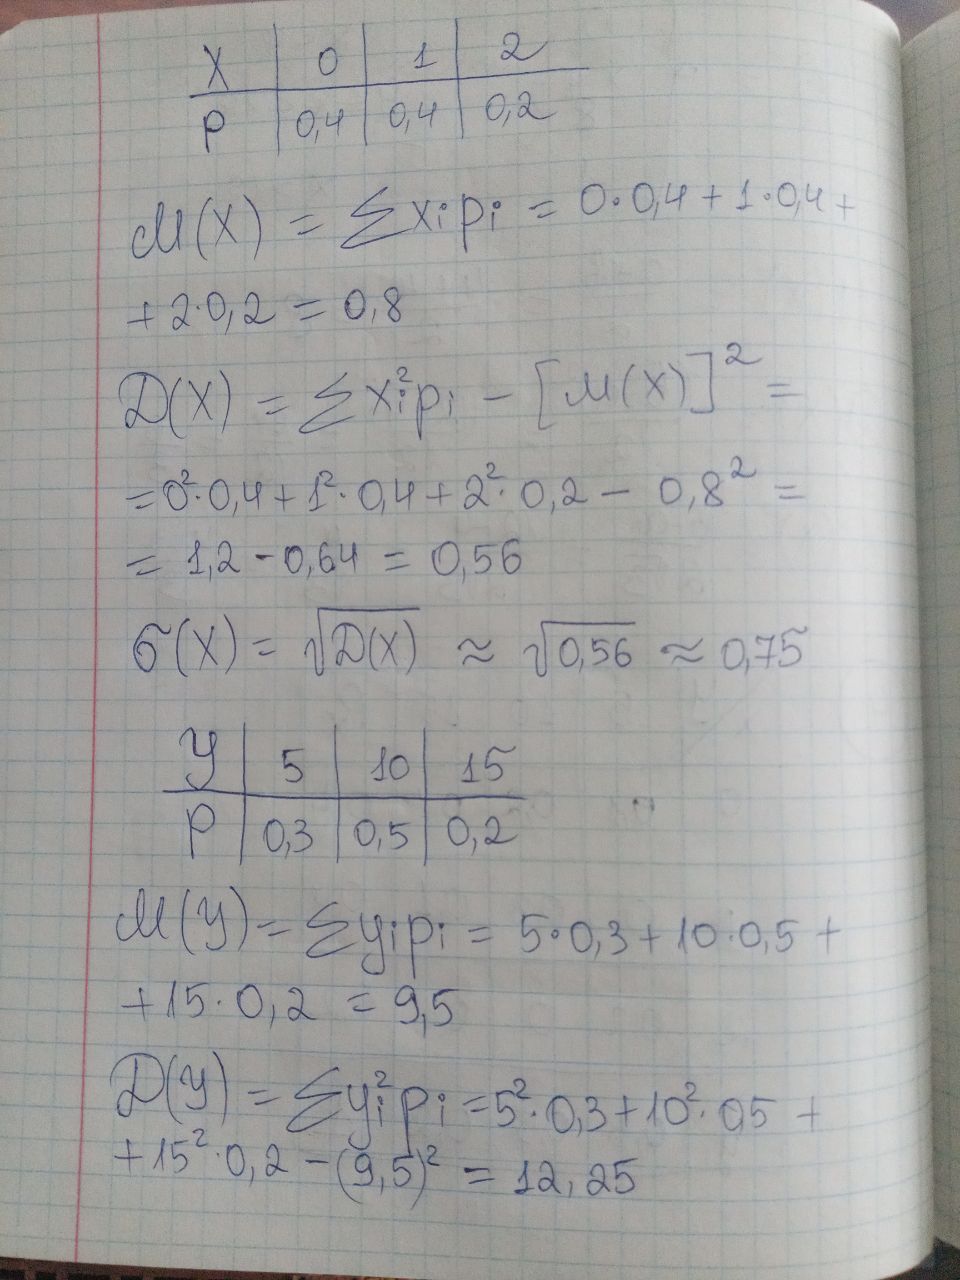 X | 0 | 1 | 2
P | 0,4 | 0,4 | 0,2
M(X) = ∑xᵢpᵢ = 0·0,4 + 1·0,4 +
+ 2·0,2 = 0,8
D(X) = ∑xᵢ²pᵢ - [M(X)]² =
= 0²·0,4 + 1²·0,4 + 2²·0,2 - 0,8² =
= 1,2 - 0,64 = 0,56
σ(X) = √D(X) ≈ √0,56 ≈ 0,75
У | 5 | 10 | 15
P | 0,3 | 0,5 | 0,2
M(У) = ∑yᵢpᵢ = 5·0,3 + 10·0,5 +
+ 15·0,2 = 9,5
D(У) = ∑yᵢ²pᵢ = 5²·0,3 + 10²·0,5 +
+ 15²·0,2 - (9,5)² = 12,25